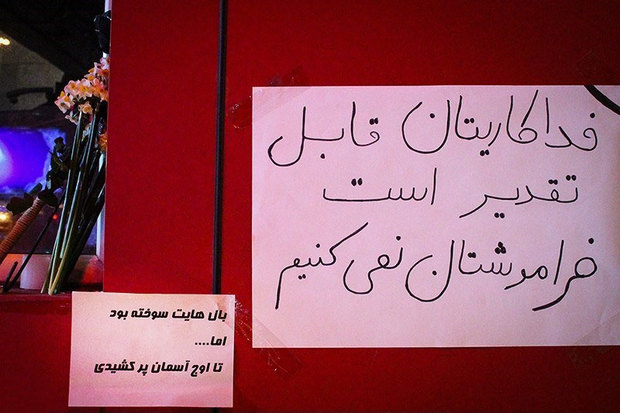 فداکاریتان قابل
تقدیر است
فراموشتان نمی کنیم
بال هایت سوخته بود
اما....
تا اوج آسمان پر کشیدی